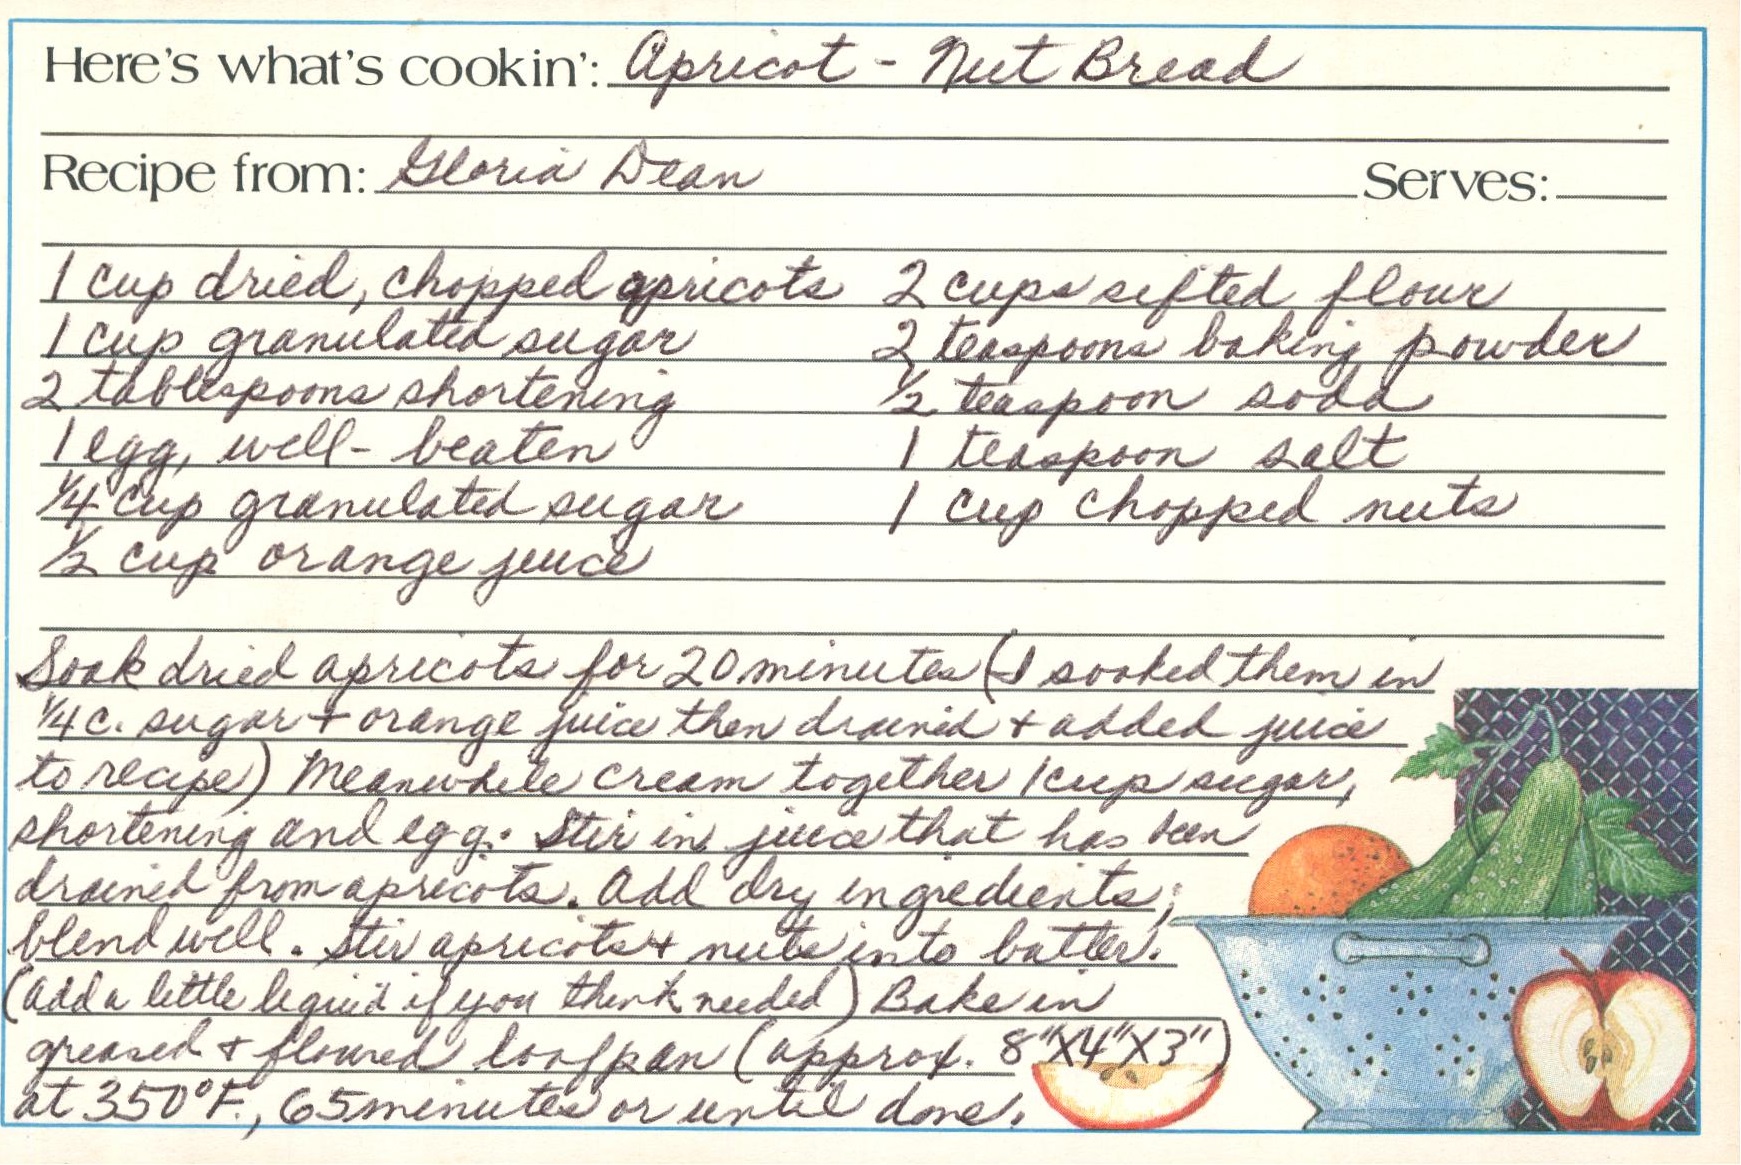 Here's what's cookin': Apricot - Nut Bread
Recipe from: Gloria Dean Serves:
1 cup dried, chopped apricots
1 cup granulated sugar
2 tablespoons shortening
1 egg, well-beaten
1/4 cup granulated sugar
1/2 cup orange juice
2 cups sifted flour
2 teaspoons baking powder
1/2 teaspoon soda
1 teaspoon salt
1 cup chopped nuts
Soak dried apricots for 20 minutes (I soaked them in
1/4 c. sugar + orange juice then drained + added juice
to recipe) Meanwhile cream together 1 cup sugar,
shortening and egg. Stir in juice that has been
drained from apricots. Add dry ingredients;
blend well. Stir apricots + nuts into batter.
(Add a little liquid if you think needed) Bake in
greased + floured loafpan (approx. 8"X4"X3")
at 350°F., 65 minutes or until done.